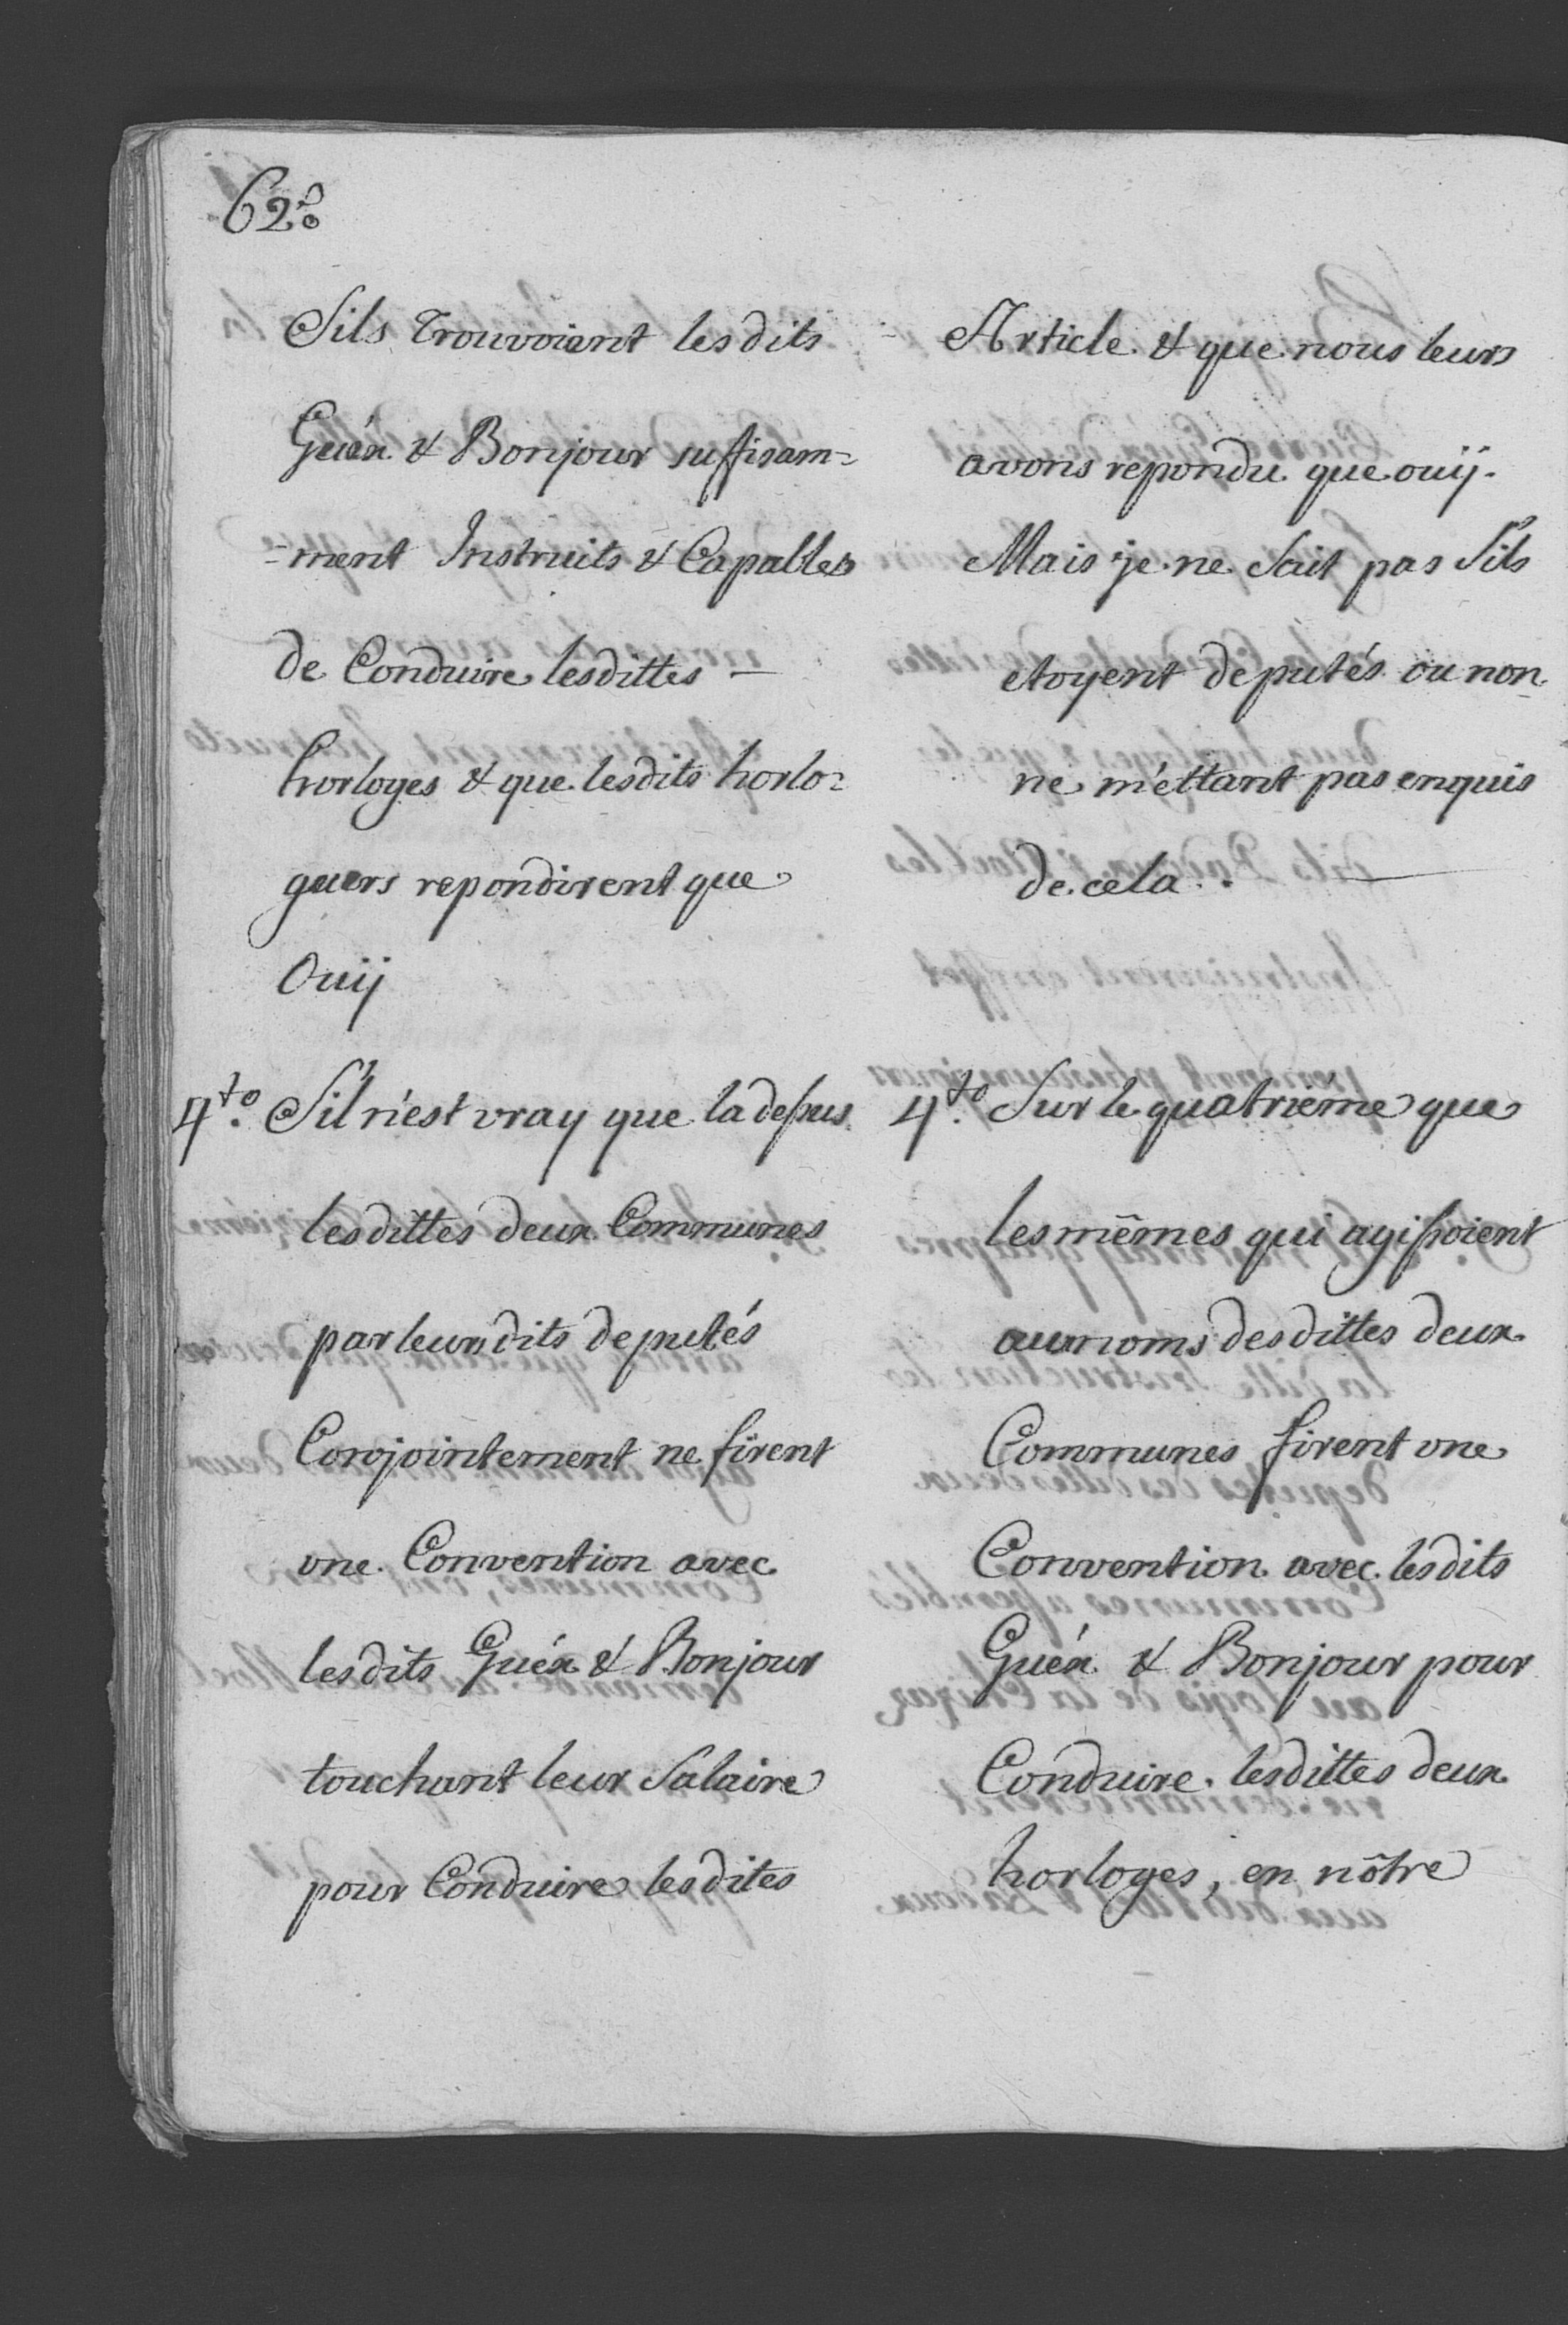 62.
Sils Trouvoient lesdits
Guéx & Bonjour suffisam=
=ment Instruits & Capables
de Conduire lesdittes —
horloges & que lesdits horlo=
guers repondirent que
Ouij
4.to S'il n'est vray que ladessus
lesdittes deux Communes
par leursdits deputés
Conjointement ne firent
une Convention avec
lesdits Guéx & Bonjour
touchant leur Salaire
pour Conduire lesdites
Article & que nous leurs
avons repondu que ouij.
Mais je ne Sait pas Sils
etoyent deputés ou non
ne m'éttant pas enquis
de cela. —
4.to Sur le quatriéme que
les mêmes qui agissoient
aux noms desdittes deux
Communes firent une
Convention avec lesdits
Guéx & Bonjour pour
Conduire lesdittes deux
horloges, en nôtre